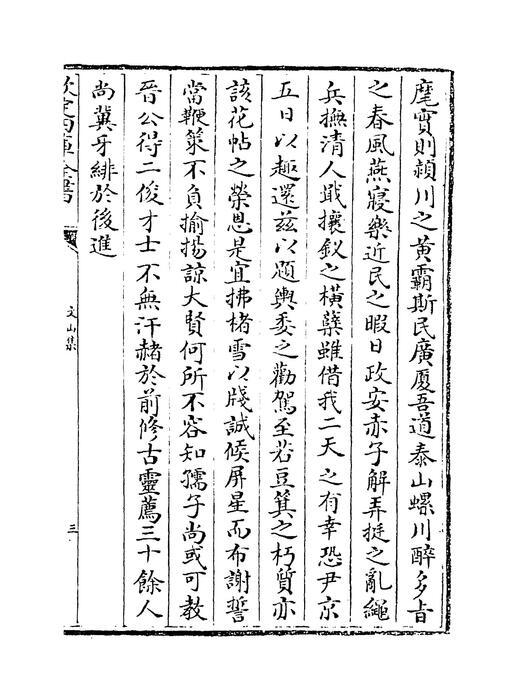 麾實則潁川之黄霸斯民廣厦吾道泰山螺川醉多旨
之春風燕寢樂近民之暇日政安赤子解弄挺之亂繩
兵撫清人戢攘釵之横孽雖借我二天之有幸恐尹京
五日以趣還兹以題輿委之勸駕至若豆箕之朽質亦
該花帖之榮恩是宜拂楮雪以牋誠候屏星而布謝誓
當鞭策不負揄揚諒大賢何所不容知孺子尚或可教
晉公得二俊才士不無汗赭於前修古靈薦三十餘人
尚冀牙緋於後進
欽定四庫全書
文山集
三